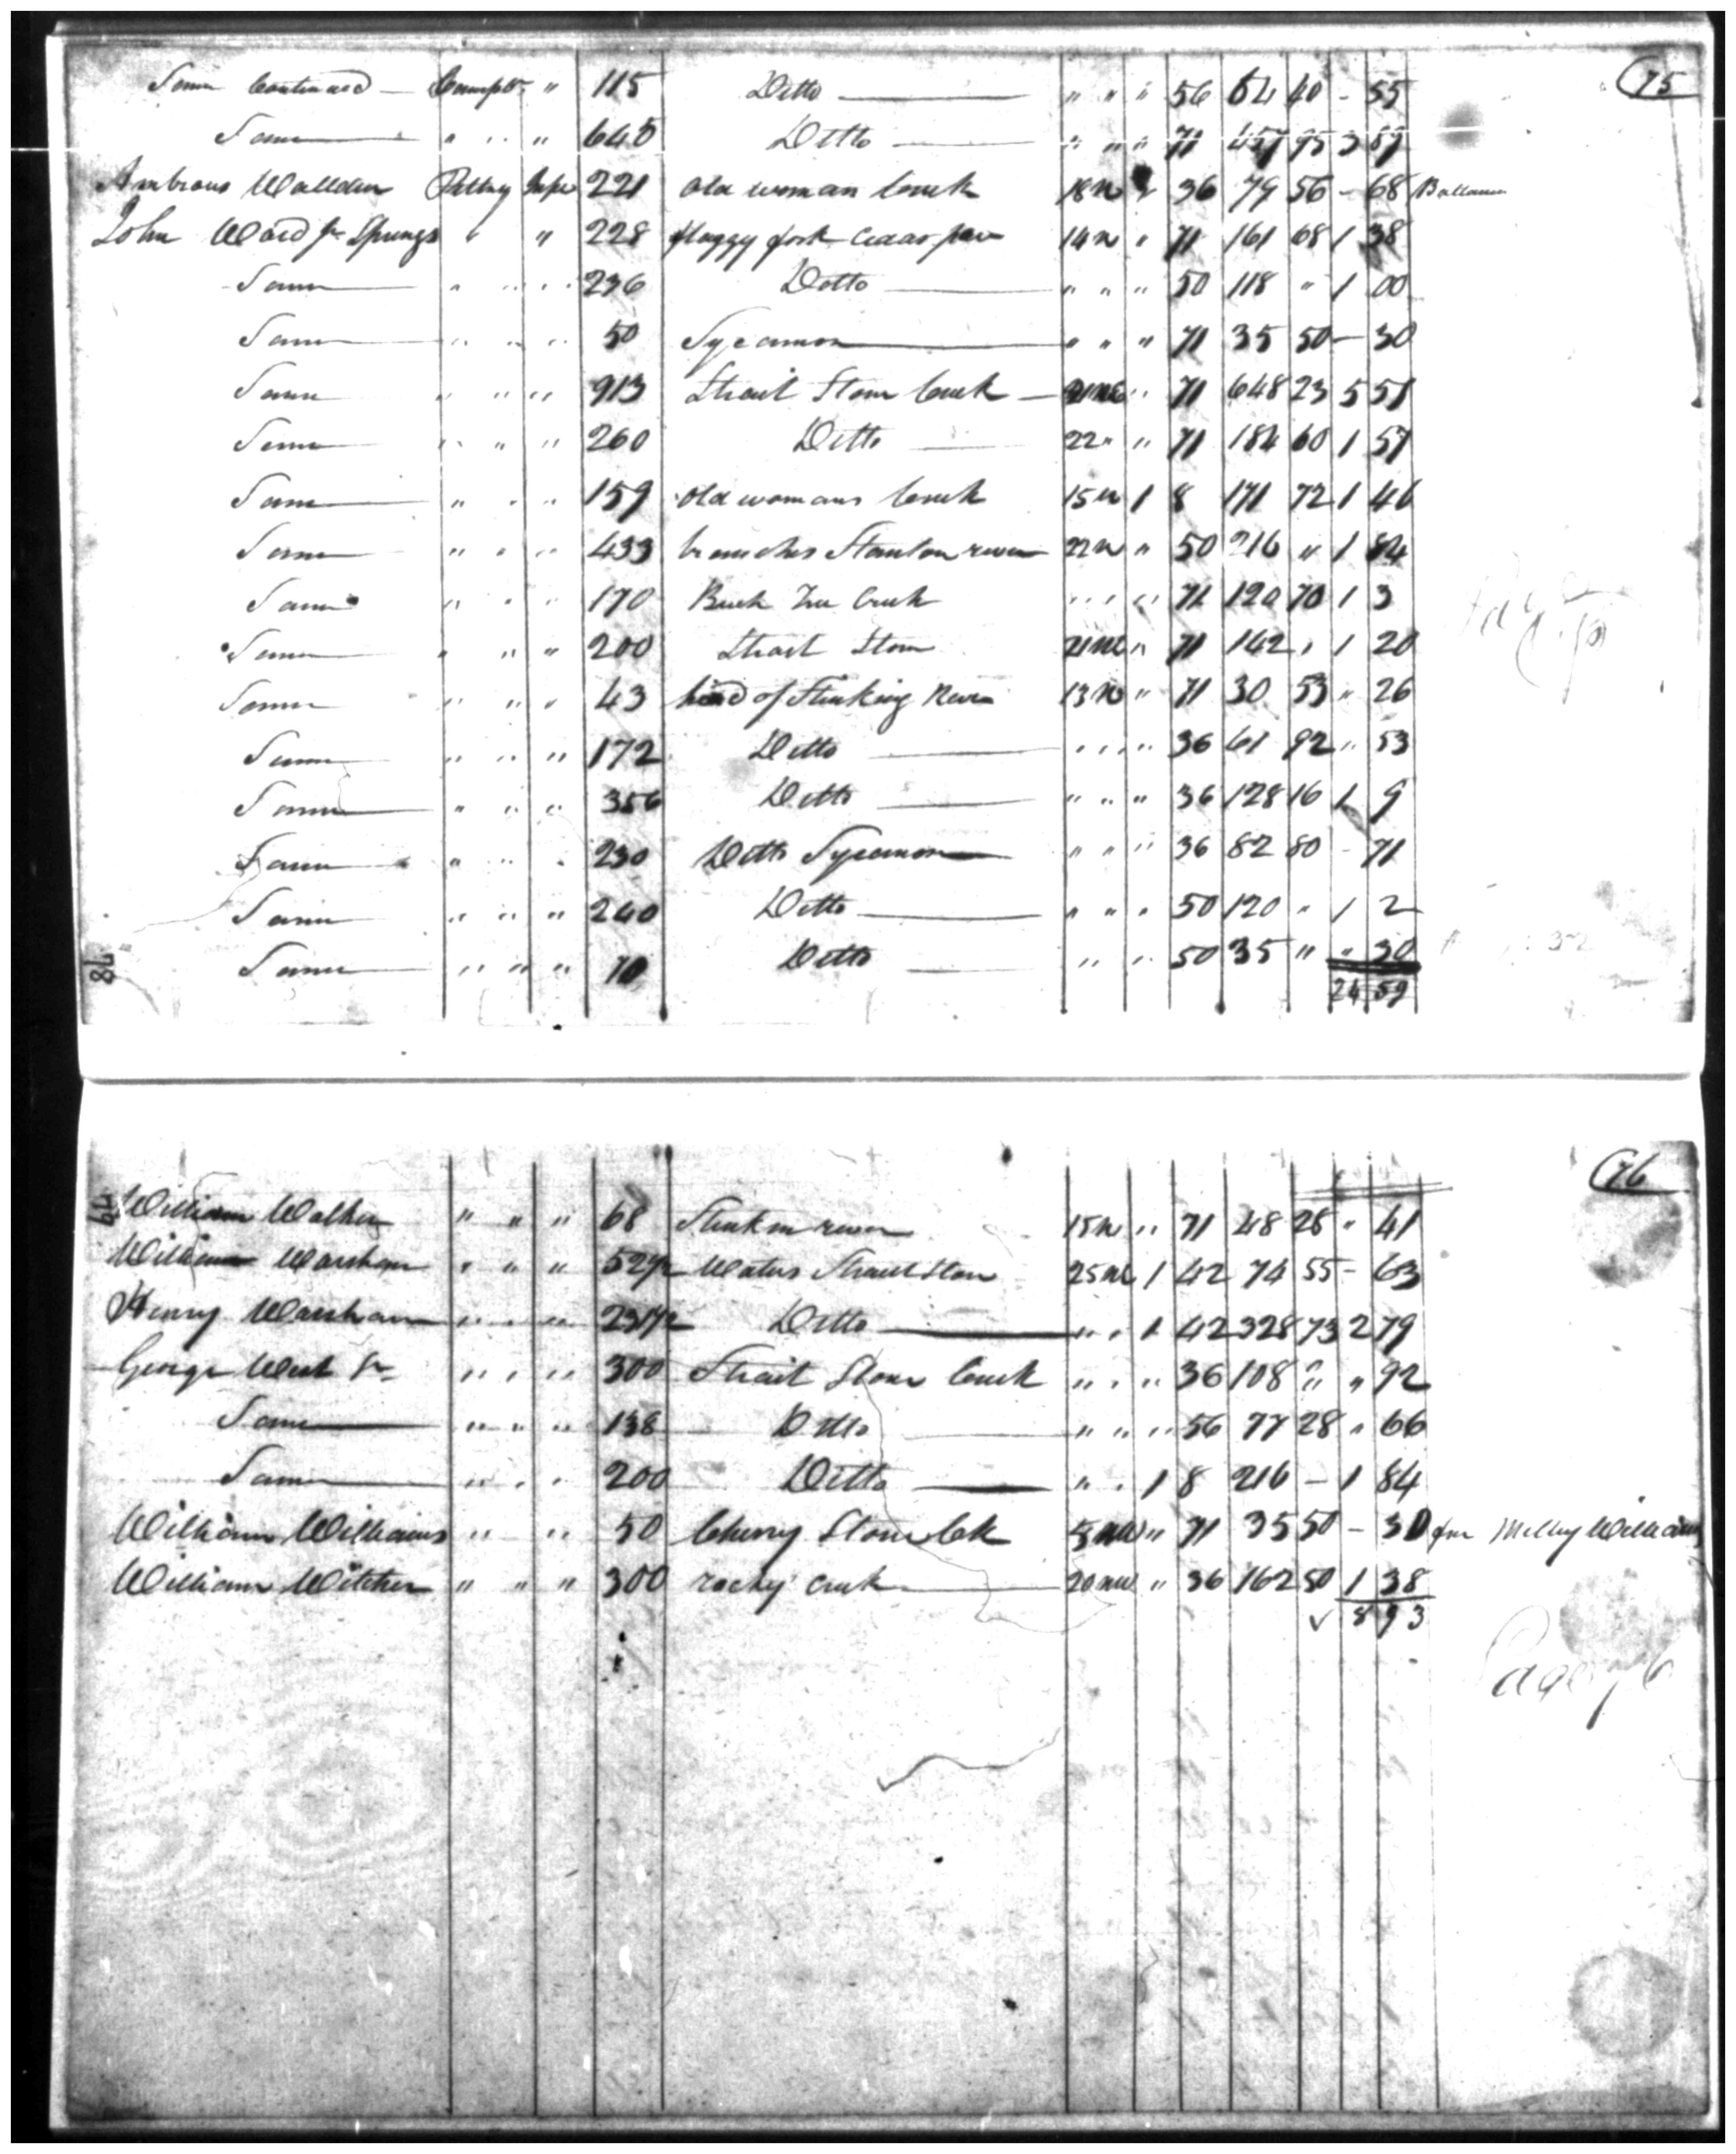 75
Same Continued — Campbl " 115 Ditto — " " " 56 64 40 - 55
Same — " " " 645 Ditto — " " " 71 457 95 3 89
Ambrous Wallden Pittsy 221 Old woman Creek 18 N " 36 79 56 - 68 Ballance
John Ward Jr Springs " " 228 flaggy fork 14 N " 71 161 68 1 38
Same — " " " 236 Ditto — " " " 50 118 " 1 00
Same — " " " 50 Sycamore — " " " 71 35 50 - 30
Same — " " " 913 Strait Stone Creek — 21 NE " 71 648 23 5 51
Same — " " " 260 Ditto — 22 " " 71 184 60 1 57
Same — " " " 159 Old womans Creek 15 N 1 8 171 72 1 46
Same — " " " 433 branches Stanton river 22 N " 50 216 " 1 84
Same " " " 170 Tree Creek " " " 71 120 70 1 3
Same — " " " 200 Strait Stone 21 NE " 71 142 " 1 20
Same — " " " 43 head of Stinking River 13 N " 71 30 53 " 26
Same — " " " 172 Ditto — " " " 36 61 92 " 53
Same — " " " 356 Ditto — " " " 36 128 16 1 9
Same — " " " 230 Ditto Sycamore — " " " 36 82 80 - 71
Same — " " " 240 Ditto — " " " 50 120 " 1 2
Same — " " " 70 Ditto — " " 50 35 " " 30
24 59
78
76
79
William Walker " " " 68 river 15 N " 71 48 28 " 41
William Warsham " " " 52 1/2 Waters Strait Stone 25 NE 1 42 74 55 - 63
Henry Warsham " " " 231 1/2 Ditto — " " 1 42 328 73 2 79
George West Sr " " " 300 Strait Stone Creek " " " 36 108 " " 92
Same — " " " 138 Ditto — " " " 56 77 28 " 66
Same — " " " 200 Ditto — " " 1 8 216 - 1 84
William Williams " " 50 Cherry Stone Ck " 71 35 50 - 30 for Milley Williams
William Witcher " " " 300 rocky Creek — 20 NW " 36 162 50 1 38
8 93
Page 76